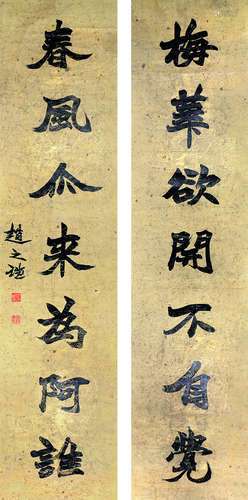 梅華欲開不自覺
春風尒来為阿誰
趙之謙